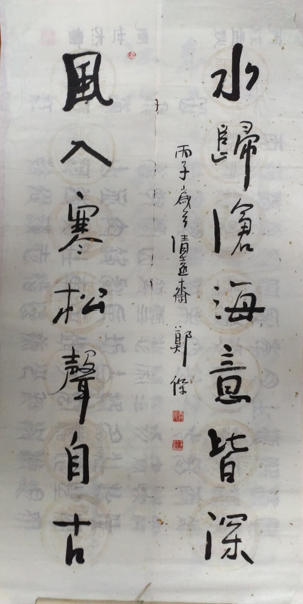 水歸滄海意皆深
風入寒松聲自古
丙子歲冬清遠齋 鄭傑